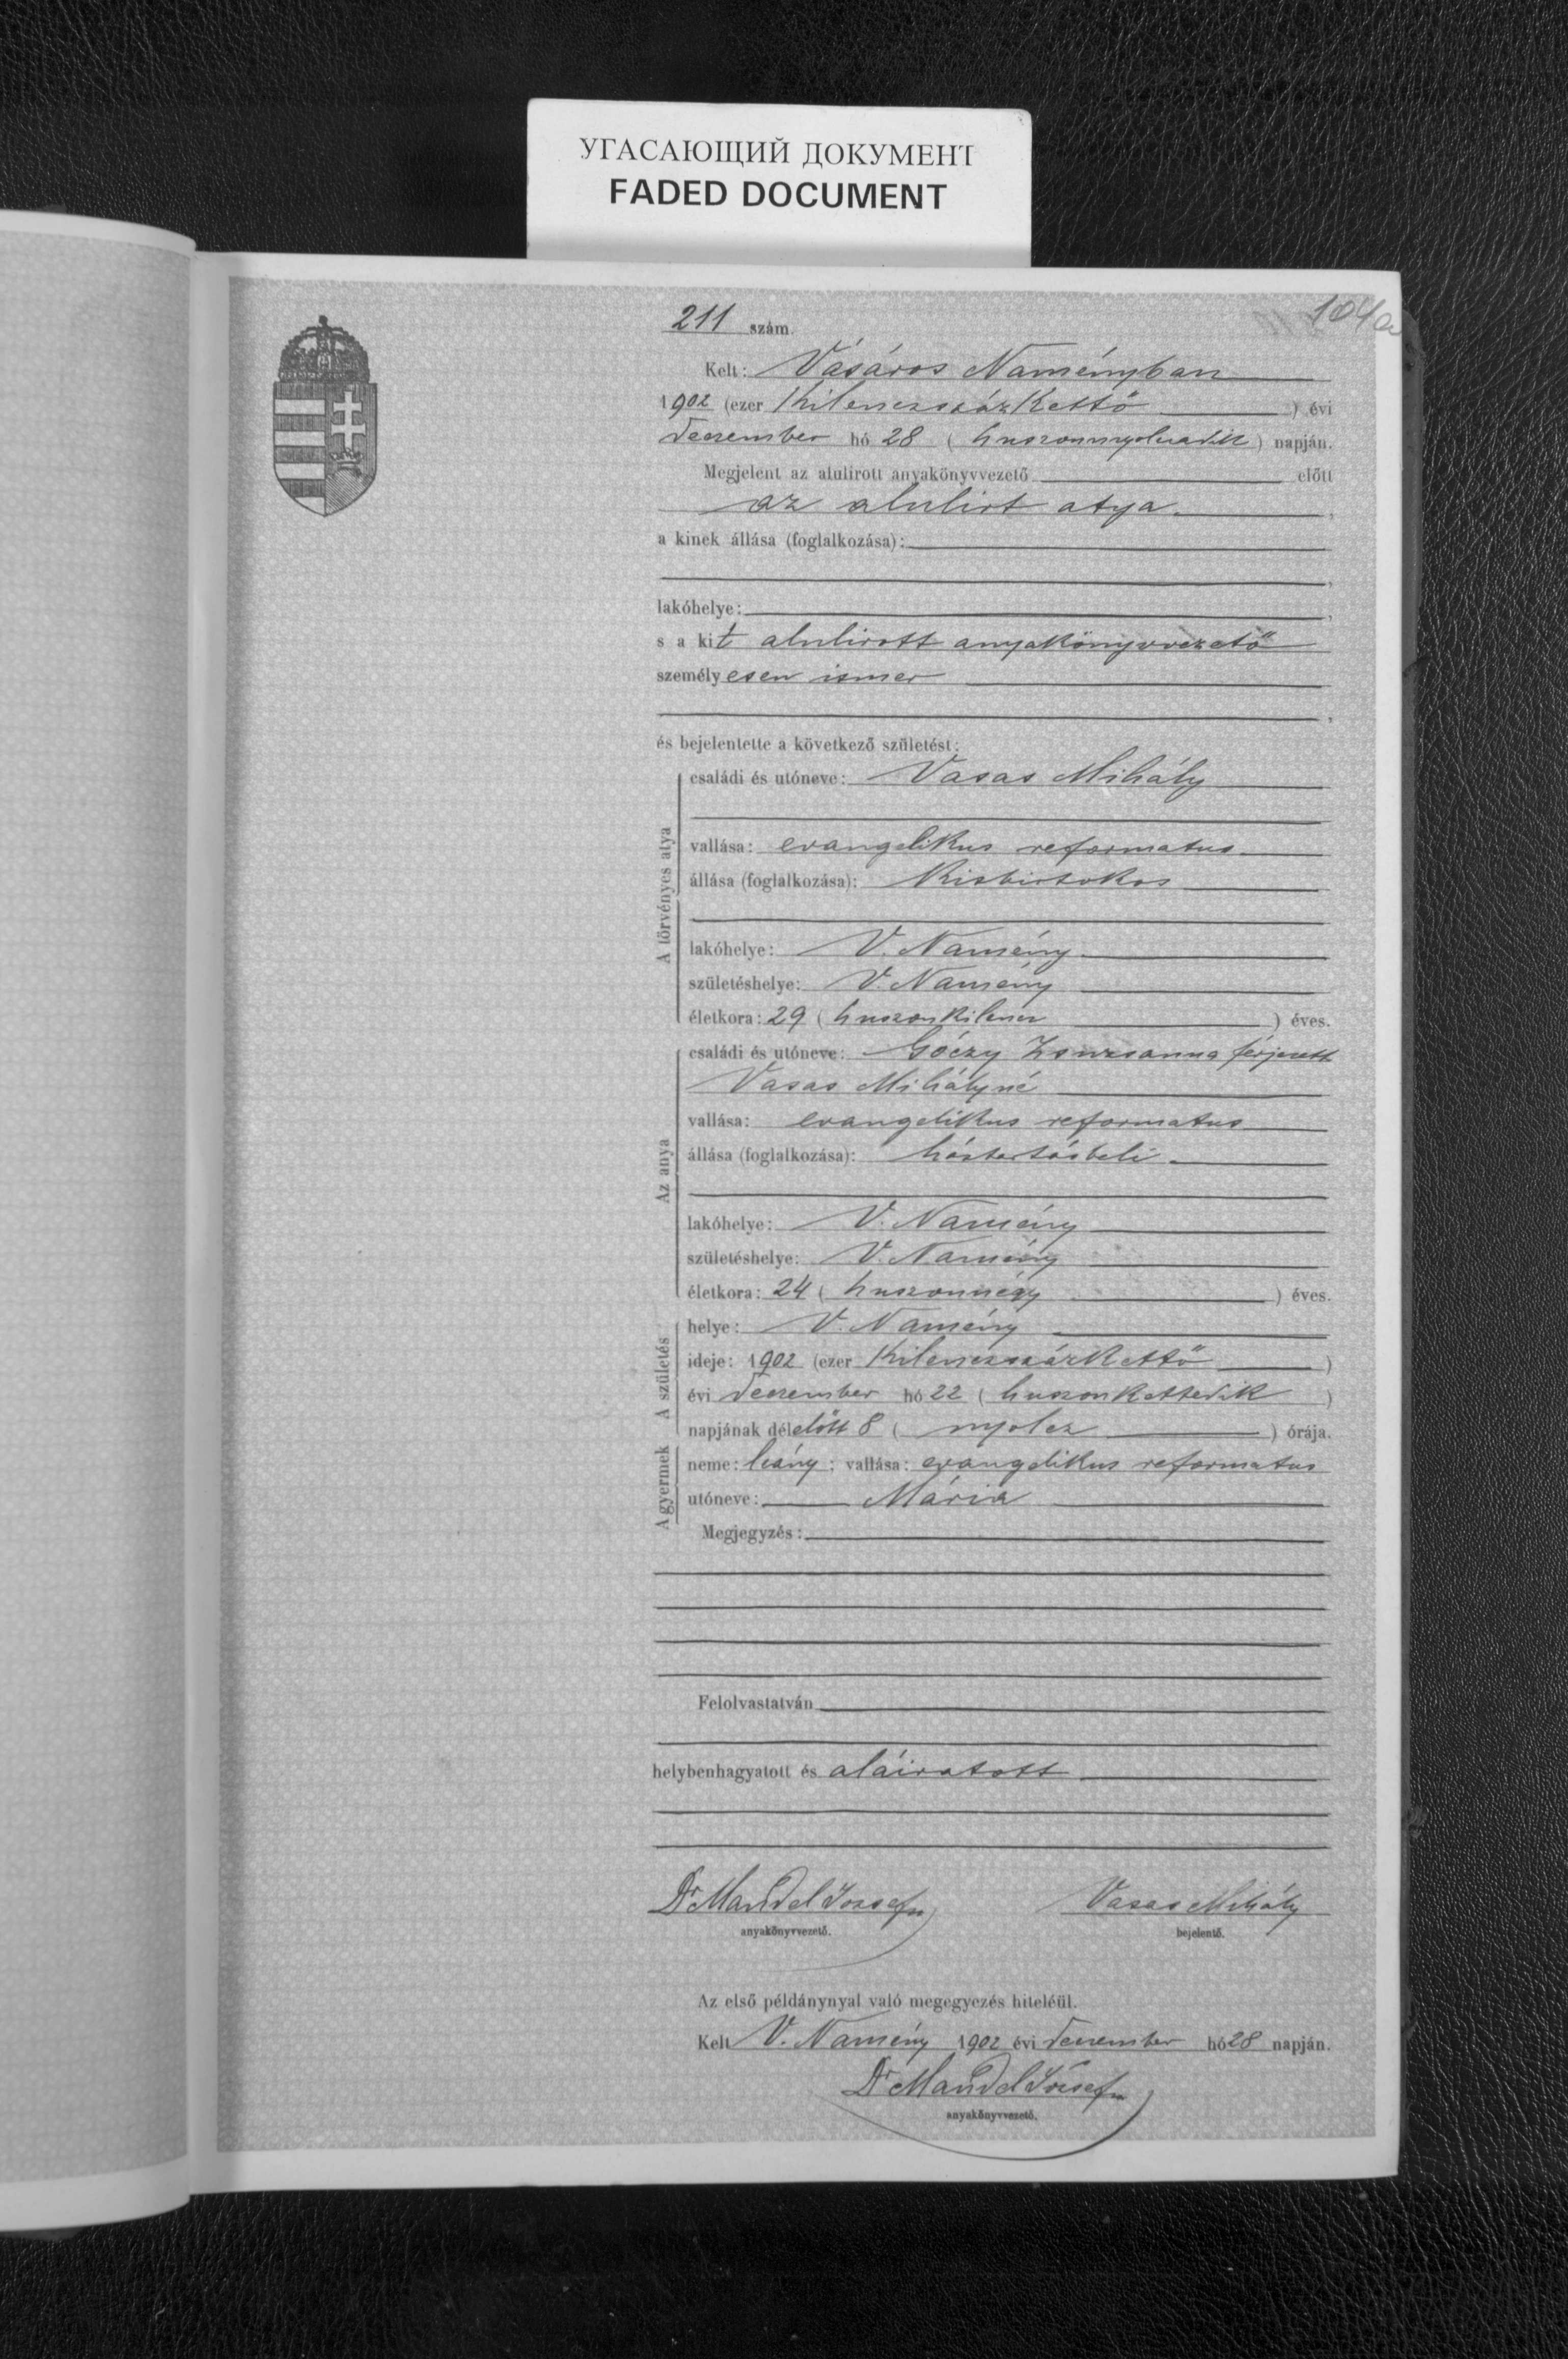 УГАСАЮЩИЙ ДОКУМЕНТ
FADED DOCUMENT
104
211 szám.
Kelt: Vásáros Naményban
1902 (ezer kilenczszázkettő) évi
deczember hó 28 (huszonnyolcadik) napján.
Megjelent az alulirott anyakönyvvezető előtt
az alulirt atya,
a kinek állása (foglalkozása):
lakóhelye:
s a kit alulirott anyakönyvvezető
személyesen ismer
és bejelentette a következő születést:
A törvényes atya
családi és utóneve: Vasas Mihály
vallása: evangelikus reformatus
állása (foglalkozása): kisbirtokos
lakóhelye: V. Namény
születéshelye: V. Namény
életkora: 29 (huszonkilencz) éves.
Az anya
családi és utóneve: Góczy Zsuzsanna férjezett
Vasas Mihályné
vallása: evangelikus reformatus
állása (foglalkozása): háztartásbeli
lakóhelye: V. Namény
születéshelye: V. Namény
életkora: 24 (huszonnégy) éves.
A születés
helye: V. Namény
ideje: 1902 (ezer kilenczszázkettő)
évi deczember hó 22 (huszonkettedik)
napjának délelőtt 8 (nyolcz) órája.
A gyermek
neme: leány; vallása: evangelikus reformatus
utóneve: Mária
Megjegyzés:
Felolvastatván
helybenhagyatott és aláiratott
Dr Mandel József Vasas Mihály
anyakönyvvezető. bejelentő.
Az első példánynyal való megegyezés hiteléül.
Kelt V. Namény 1902 évi deczember hó 28 napján.
Dr Mandel József
anyakönyvvezető.